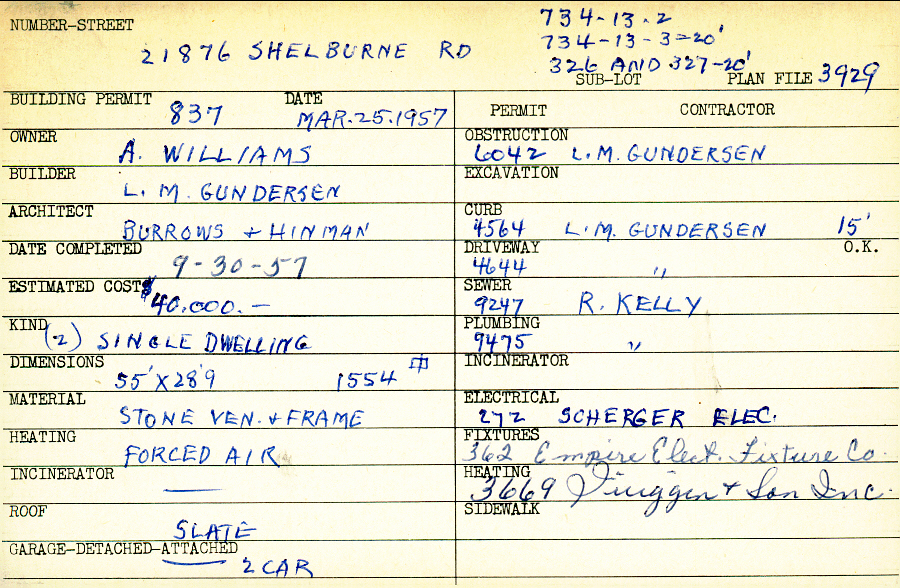 NUMBER-STREET
734-13-2
21876 SHELBURNE RD
734-13-3=20'
326 AND 327-20'
SUB-LOT PLAN FILE 3929
BUILDING PERMIT 837 DATE MAR.25.1957
OWNER A. WILLIAMS
BUILDER L. M. GUNDERSEN
ARCHITECT BURROWS + HINMAN
DATE COMPLETED 9-30-57
ESTIMATED COST $40,000.-
KIND (2) SINGLE DWELLING
DIMENSIONS 55' X 28'9 1554
MATERIAL STONE VEN. + FRAME
HEATING FORCED AIR
INCINERATOR —
ROOF SLATE
GARAGE-DETACHED-ATTACHED 2 CAR
PERMIT CONTRACTOR
OBSTRUCTION 6042 L.M. GUNDERSEN
EXCAVATION
CURB 4564 L.M. GUNDERSEN 15'
DRIVEWAY 4644 " O.K.
SEWER 9247 R. KELLY
PLUMBING 9475 "
INCINERATOR
ELECTRICAL 272 SCHERGER ELEC.
FIXTURES 362 Empire Elect. Fixture Co.
HEATING 3669 + Son Inc.
SIDEWALK